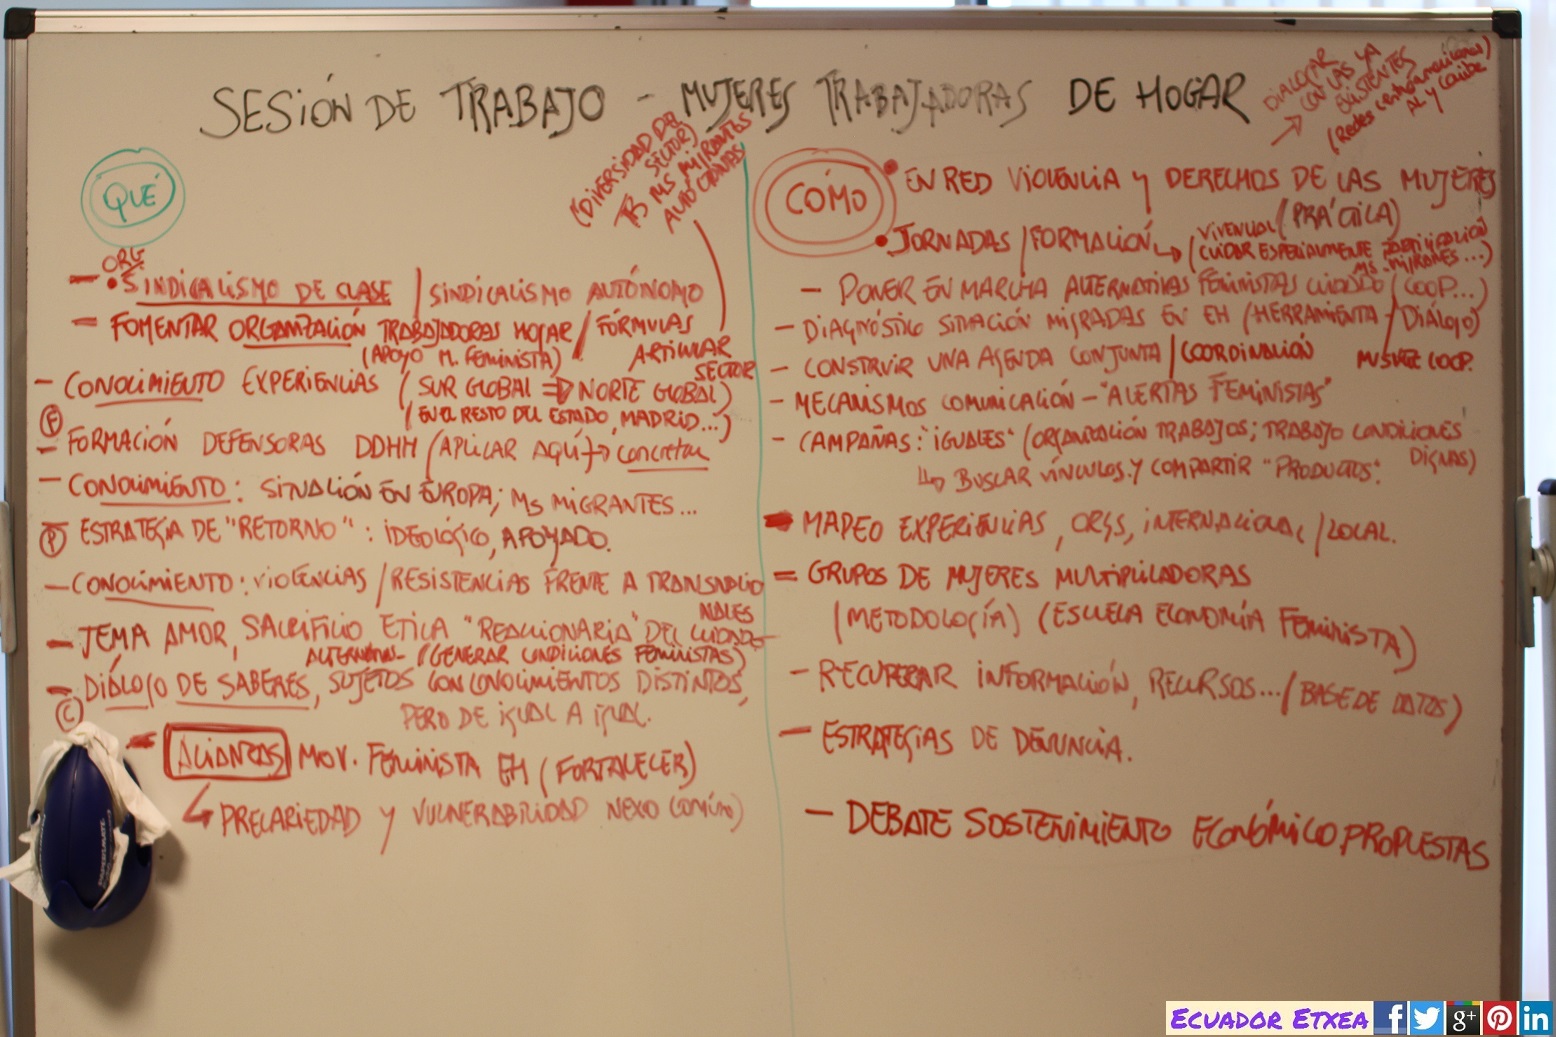 SESIÓN DE TRABAJO - MUJERES TRABAJADORAS DE HOGAR
QUÉ
(DIVERSIDAD DE
SECTOR)
TS MS MIGRANTES
AUTÓCTONAS
ORG.
- • SINDICALISMO DE CLASE / SINDICALISMO AUTÓNOMO
- FOMENTAR ORGANIZACIÓN TRABAJADORAS HOGAR / FÓRMULAS
(APOYO M. FEMINISTA)
ARTICULAR
SECTOR
- CONOCIMIENTO EXPERIENCIAS (SUR GLOBAL => NORTE GLOBAL)
(EN EL RESTO DEL ESTADO, MADRID...)
F
- FORMACIÓN DEFENSORAS DDHH (APLICAR AQUÍ → concretar
- CONOCIMIENTO: SITUACIÓN EN EUROPA; MS MIGRANTES...
P
ESTRATEGIA DE "RETORNO": IDEOLÓGICO, APOYADO.
- CONOCIMIENTO: VIOLENCIAS / RESISTENCIAS FRENTE A TRANSNACIO
NALES
- TEMA AMOR, SACRIFICIO ETICA "REACCIONARIA" DEL CUIDADO
ALTERNATIV- (GENERAR CONDICIONES FEMINISTAS)
- DIÁLOGO DE SABERES, SUJETOS CON CONOCIMIENTOS DISTINTOS,
PERO DE IGUAL A IGUAL.
C
- ALIANZAS MOV. FEMINISTA EH (FORTALECER)
↳ PRECARIEDAD Y VULNERABILIDAD NEXO COMÚN)
CÓMO
→ DIALOGAR
CON LAS YA
EXISTENTES
(Redes centroamericanas)
AL y Caribe
• EN RED VIOLENCIA Y DERECHOS DE LAS MUJERES
• JORNADAS / FORMACIÓN → VIVENCIAL (PRÁCTICA)
(CUIDAR ESPECIALMENTE
MS MIGRANES...)
- PONER EN MARCHA ALTERNATIVAS FEMINISTAS CUIDADO (COOP...)
- DIAGNÓSTICO SITUACIÓN MIGRADAS EN EH (HERRAMIENTA DIÁLOGO)
- CONSTRUIR UNA AGENDA CONJUNTA / COORDINACIÓN
COOP.
- MECANISMOS COMUNICACIÓN - "ALERTAS FEMINISTAS"
- CAMPAÑAS: "IGUALES" (ORGANIZACIÓN TRABAJOS; TRABAJO CONDICIONES
DIGNAS)
↳ BUSCAR VÍNCULOS Y COMPARTIR "PRODUCTOS".
- MAPEO EXPERIENCIAS, ORGS, INTERNACIONAL / LOCAL.
- GRUPOS DE MUJERES MULTIPLICADORAS
(METODOLOGÍA) (ESCUELA ECONOMÍA FEMINISTA)
- RECUPERAR INFORMACIÓN, RECURSOS... (BASE DE DATOS)
- ESTRATEGIAS DE DENUNCIA.
- DEBATE SOSTENIMIENTO ECONÓMICO PROPUESTAS
ECUADOR ETXEA